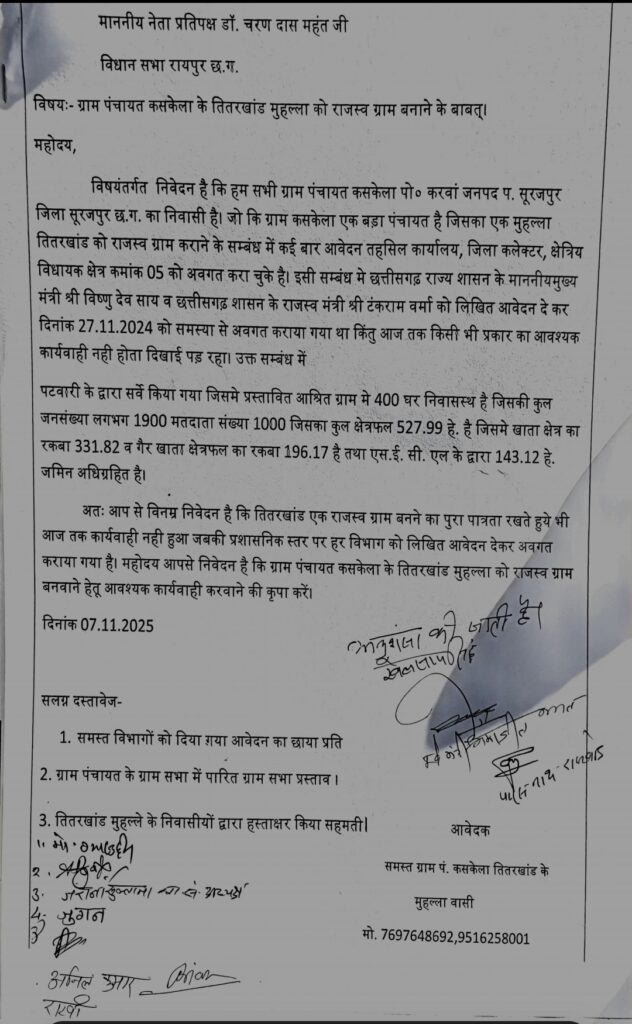 माननीय नेता प्रतिपक्ष डॉ. चरण दास महंत जी
विधान सभा रायपुर छ.ग.
विषयः- ग्राम पंचायत कसकेला के तितरखांड मुहल्ला को राजस्व ग्राम बनाने के बाबत्।
महोदय,
विषयंतर्गत निवेदन है कि हम सभी ग्राम पंचायत कसकेला पो० करवां जनपद प. सूरजपुर
जिला सूरजपुर छ.ग. का निवासी है। जो कि ग्राम कसकेला एक बड़ा पंचायत है जिसका एक मुहल्ला
तितरखांड को राजस्व ग्राम कराने के सम्बंध में कई बार आवेदन तहसिल कार्यालय, जिला कलेक्टर, क्षेत्रिय
विधायक क्षेत्र कमांक 05 को अवगत करा चुके है। इसी सम्बंध मे छत्तीसगढ़ राज्य शासन के माननीयमुख्य
मंत्री श्री विष्णु देव साय व छत्तीसगढ़ शासन के राजस्व मंत्री श्री टंकराम वर्मा को लिखित आवेदन दे कर
दिनांक 27.11.2024 को समस्या से अवगत कराया गया था किंतु आज तक किसी भी प्रकार का आवश्यक
कार्यवाही नही होता दिखाई पड़ रहा। उक्त सम्बंध में
पटवारी के द्वारा सर्वे किया गया जिसमे प्रस्तावित आश्रित ग्राम मे 400 घर निवासस्थ है जिसकी कुल
जनसंख्या लगभग 1900 मतदाता संख्या 1000 जिसका कुल क्षेत्रफल 527.99 हे. है जिसमे खाता क्षेत्र का
रकबा 331.82 व गैर खाता क्षेत्रफल का रकबा 196.17 है तथा एस.ई. सी. एल के द्वारा 143.12 हे.
जमिन अधिग्रहित है।
अतः आप से विनम्र निवेदन है कि तितरखांड एक राजस्व ग्राम बनने का पुरा पात्रता रखते हुये भी
आज तक कार्यवाही नही हुआ जबकी प्रशासनिक स्तर पर हर विभाग को लिखित आवेदन देकर अवगत
कराया गया है। महोदय आपसे निवेदन है कि ग्राम पंचायत कसकेला के तितरखांड मुहल्ला को राजस्व ग्राम
बनवाने हेतू आवश्यक कार्यवाही करवाने की कृपा करें।
दिनांक 07.11.2025
अनुशंसा की जाती है।
सलग्न दस्तावेज-
1. समस्त विभागों को दिया गया आवेदन का छाया प्रति
2. ग्राम पंचायत के ग्राम सभा में पारित ग्राम सभा प्रस्ताव ।
3. तितरखांड मुहल्ले के निवासीयों द्वारा हस्ताक्षर किया सहमती|
आवेदक
समस्त ग्राम पं. कसकेला तितरखांड के
मुहल्ला वासी
मो. 7697648692,9516258001
1. मो.
2.
3.
4. जुगन
अनिल कुमार